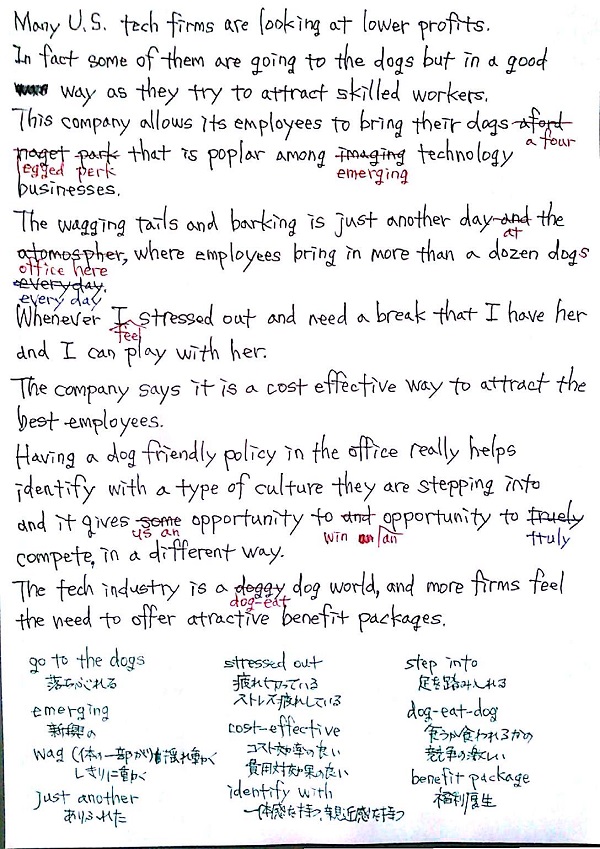 Many U.S. tech firms are looking at lower profits.
In fact some of them are going to the dogs but in a good
way as they try to attract skilled workers.
This company allows its employees to bring their dogs aford
a four
naget park that is poplar among imaging technology
egged perk emerging
businesses.
The wagging tails and barking is just another day and the
at
atomospher, where employees bring in more than a dozen dogs
office here
everyday.
every day
Whenever I stressed out and need a break that I have her
feel
and I can play with her.
The company says it is a cost effective way to attract the
best employees.
Having a dog friendly policy in the office really helps
identify with a type of culture they are stepping into
and it gives some opportunity to and opportunity to truely
us an win an truly
compete, in a different way.
The tech industry is a doggy dog world, and more firms feel
dog-eat
the need to offer atractive benefit packages.
go to the dogs stressed out step into
落ちぶれる 疲れ切っている 足を踏み入れる
emerging ストレス疲れしている dog-eat-dog
新興の cost-effective 食うか食われるかの
wag (体の一部が)揺れ動く コスト効率の良い 競争の激しい
しきりに動く 費用対効果の良い benefit package
just another identify with 福利厚生
ありふれた 一体感を持つ、親近感を持つ